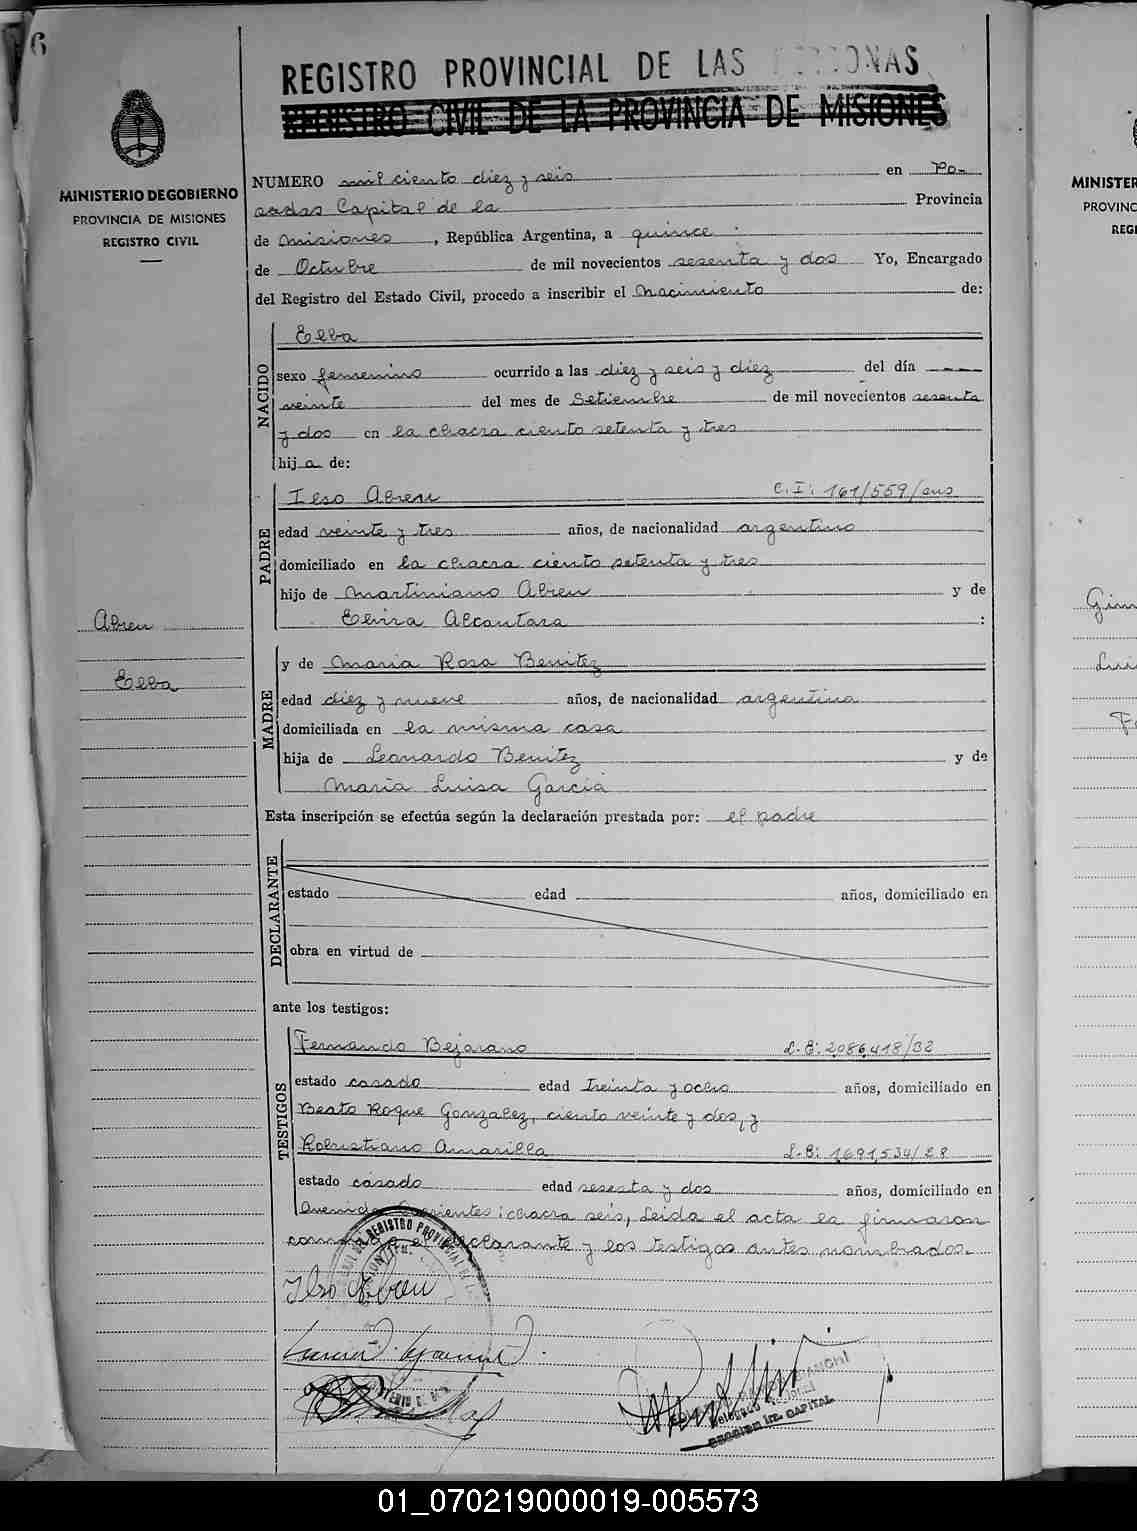 6
REGISTRO PROVINCIAL DE LAS PERSONAS
REGISTRO CIVIL DE LA PROVINCIA DE MISIONES
MINISTERIO DE GOBIERNO
PROVINCIA DE MISIONES
REGISTRO CIVIL
NUMERO mil ciento diez y seis en Po-
sadas Capital de la Provincia
de Misiones, República Argentina, a quince
de Octubre de mil novecientos sesenta y dos Yo, Encargado
del Registro del Estado Civil, procedo a inscribir el Nacimiento de:
NACIDO
Elba
sexo femenino ocurrido a las diez y seis y diez del día
veinte del mes de Setiembre de mil novecientos sesenta
y dos en la chacra ciento setenta y tres
hija de:
PADRE
Ilso Abreu C.I: 161/559/
edad veinte y tres años, de nacionalidad argentino
domiciliado en la chacra ciento setenta y tres
hijo de Martiniano Abreu y de
Elvira Alcantara :
Abreu
Elba
MADRE
y de Maria Rosa Benitez
edad diez y nueve años, de nacionalidad argentina
domiciliada en la misma casa
hija de Leonardo Benitez y de
Maria Luisa Garcia
Esta inscripción se efectúa según la declaración prestada por: el padre
DECLARANTE
estado edad años, domiciliado en
obra en virtud de
ante los testigos:
TESTIGOS
Fernando Bejarano L.E: 2,086,418/32
estado casado edad Treinta y ocho años, domiciliado en
Beato Roque Gonzalez, ciento veinte y dos, y
Robustiano Amarilla L.E: 1,691,534/28
estado casado edad sesesta y dos años, domiciliado en
Avenida Corrientes: chacra seis, Leida el acta la firmaron
conmigo el declarante y los testigos antes nombrados.
Ilso Abreu
SECCION 1ra. CAPITAL
MINISTER
PROVINC
REGI
01_070219000019-005573